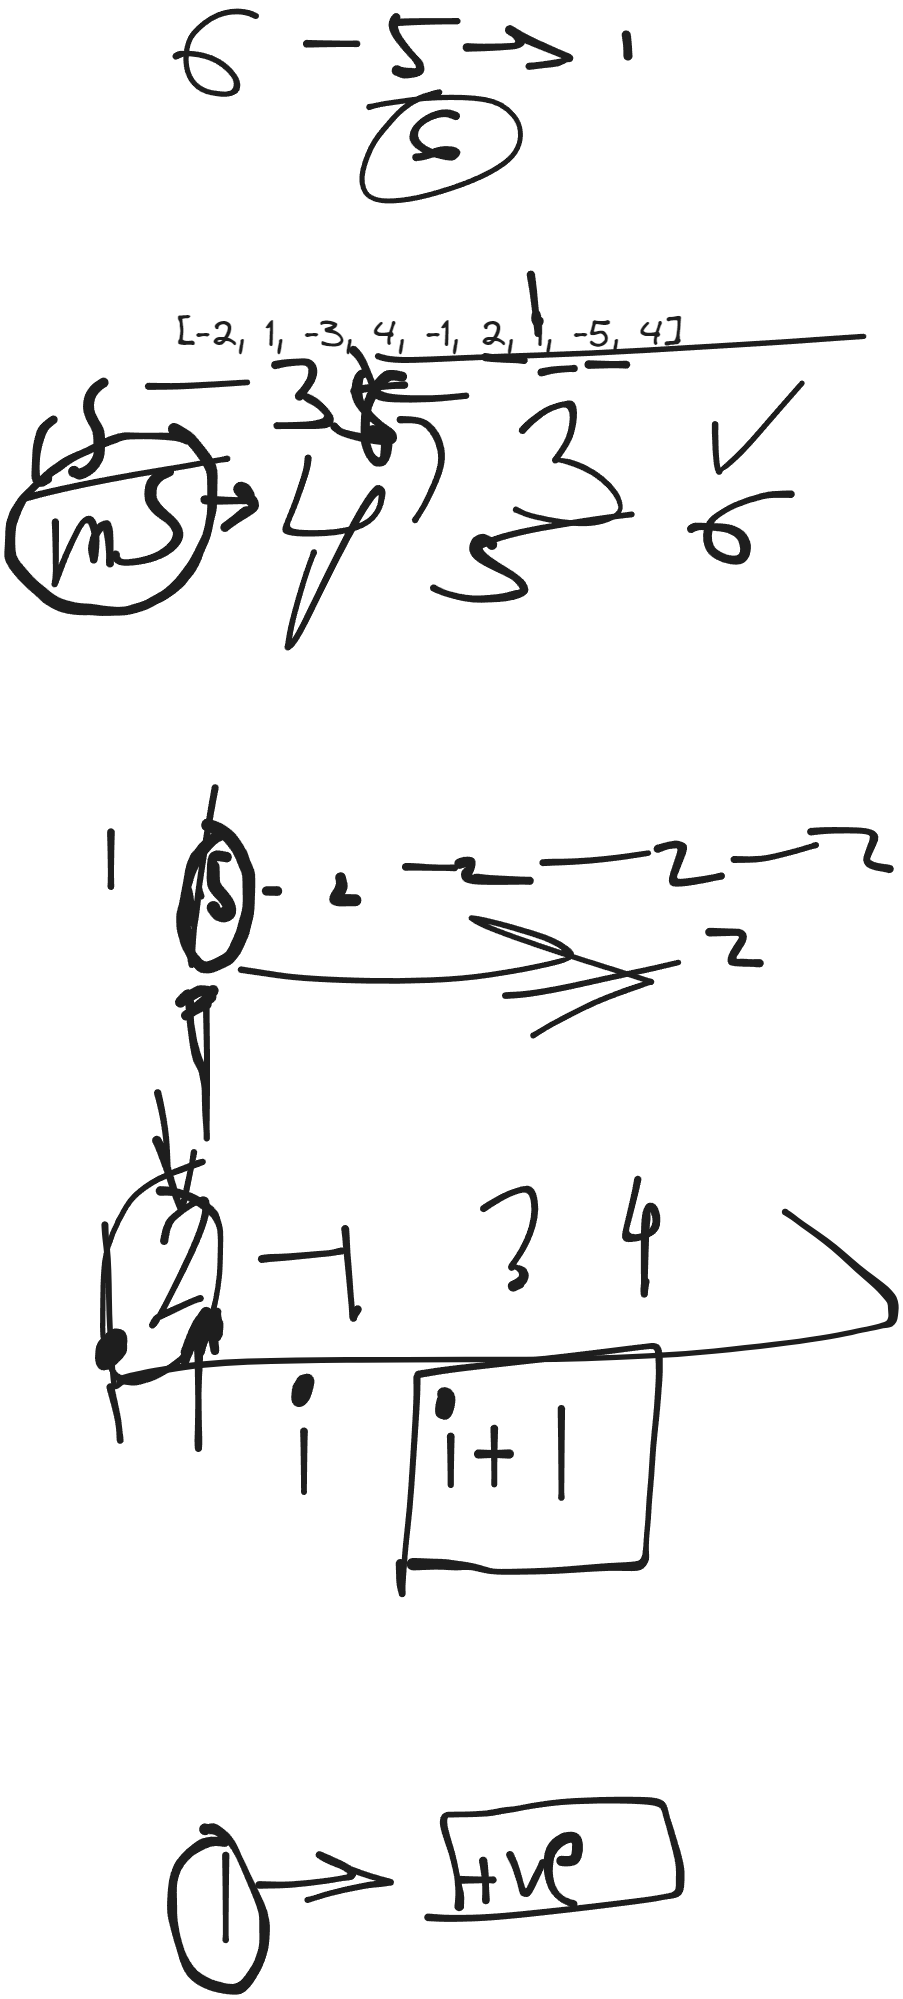 6 - 5 → 1
5
[-2, 1, -3, 4, -1, 2, 1, -5, 4]
cs - 3
ms → 4 5 3 6
1 5 - 2 - 2 - 2 - 2
2
2 -1 3 4
i i+1
1 → +ve